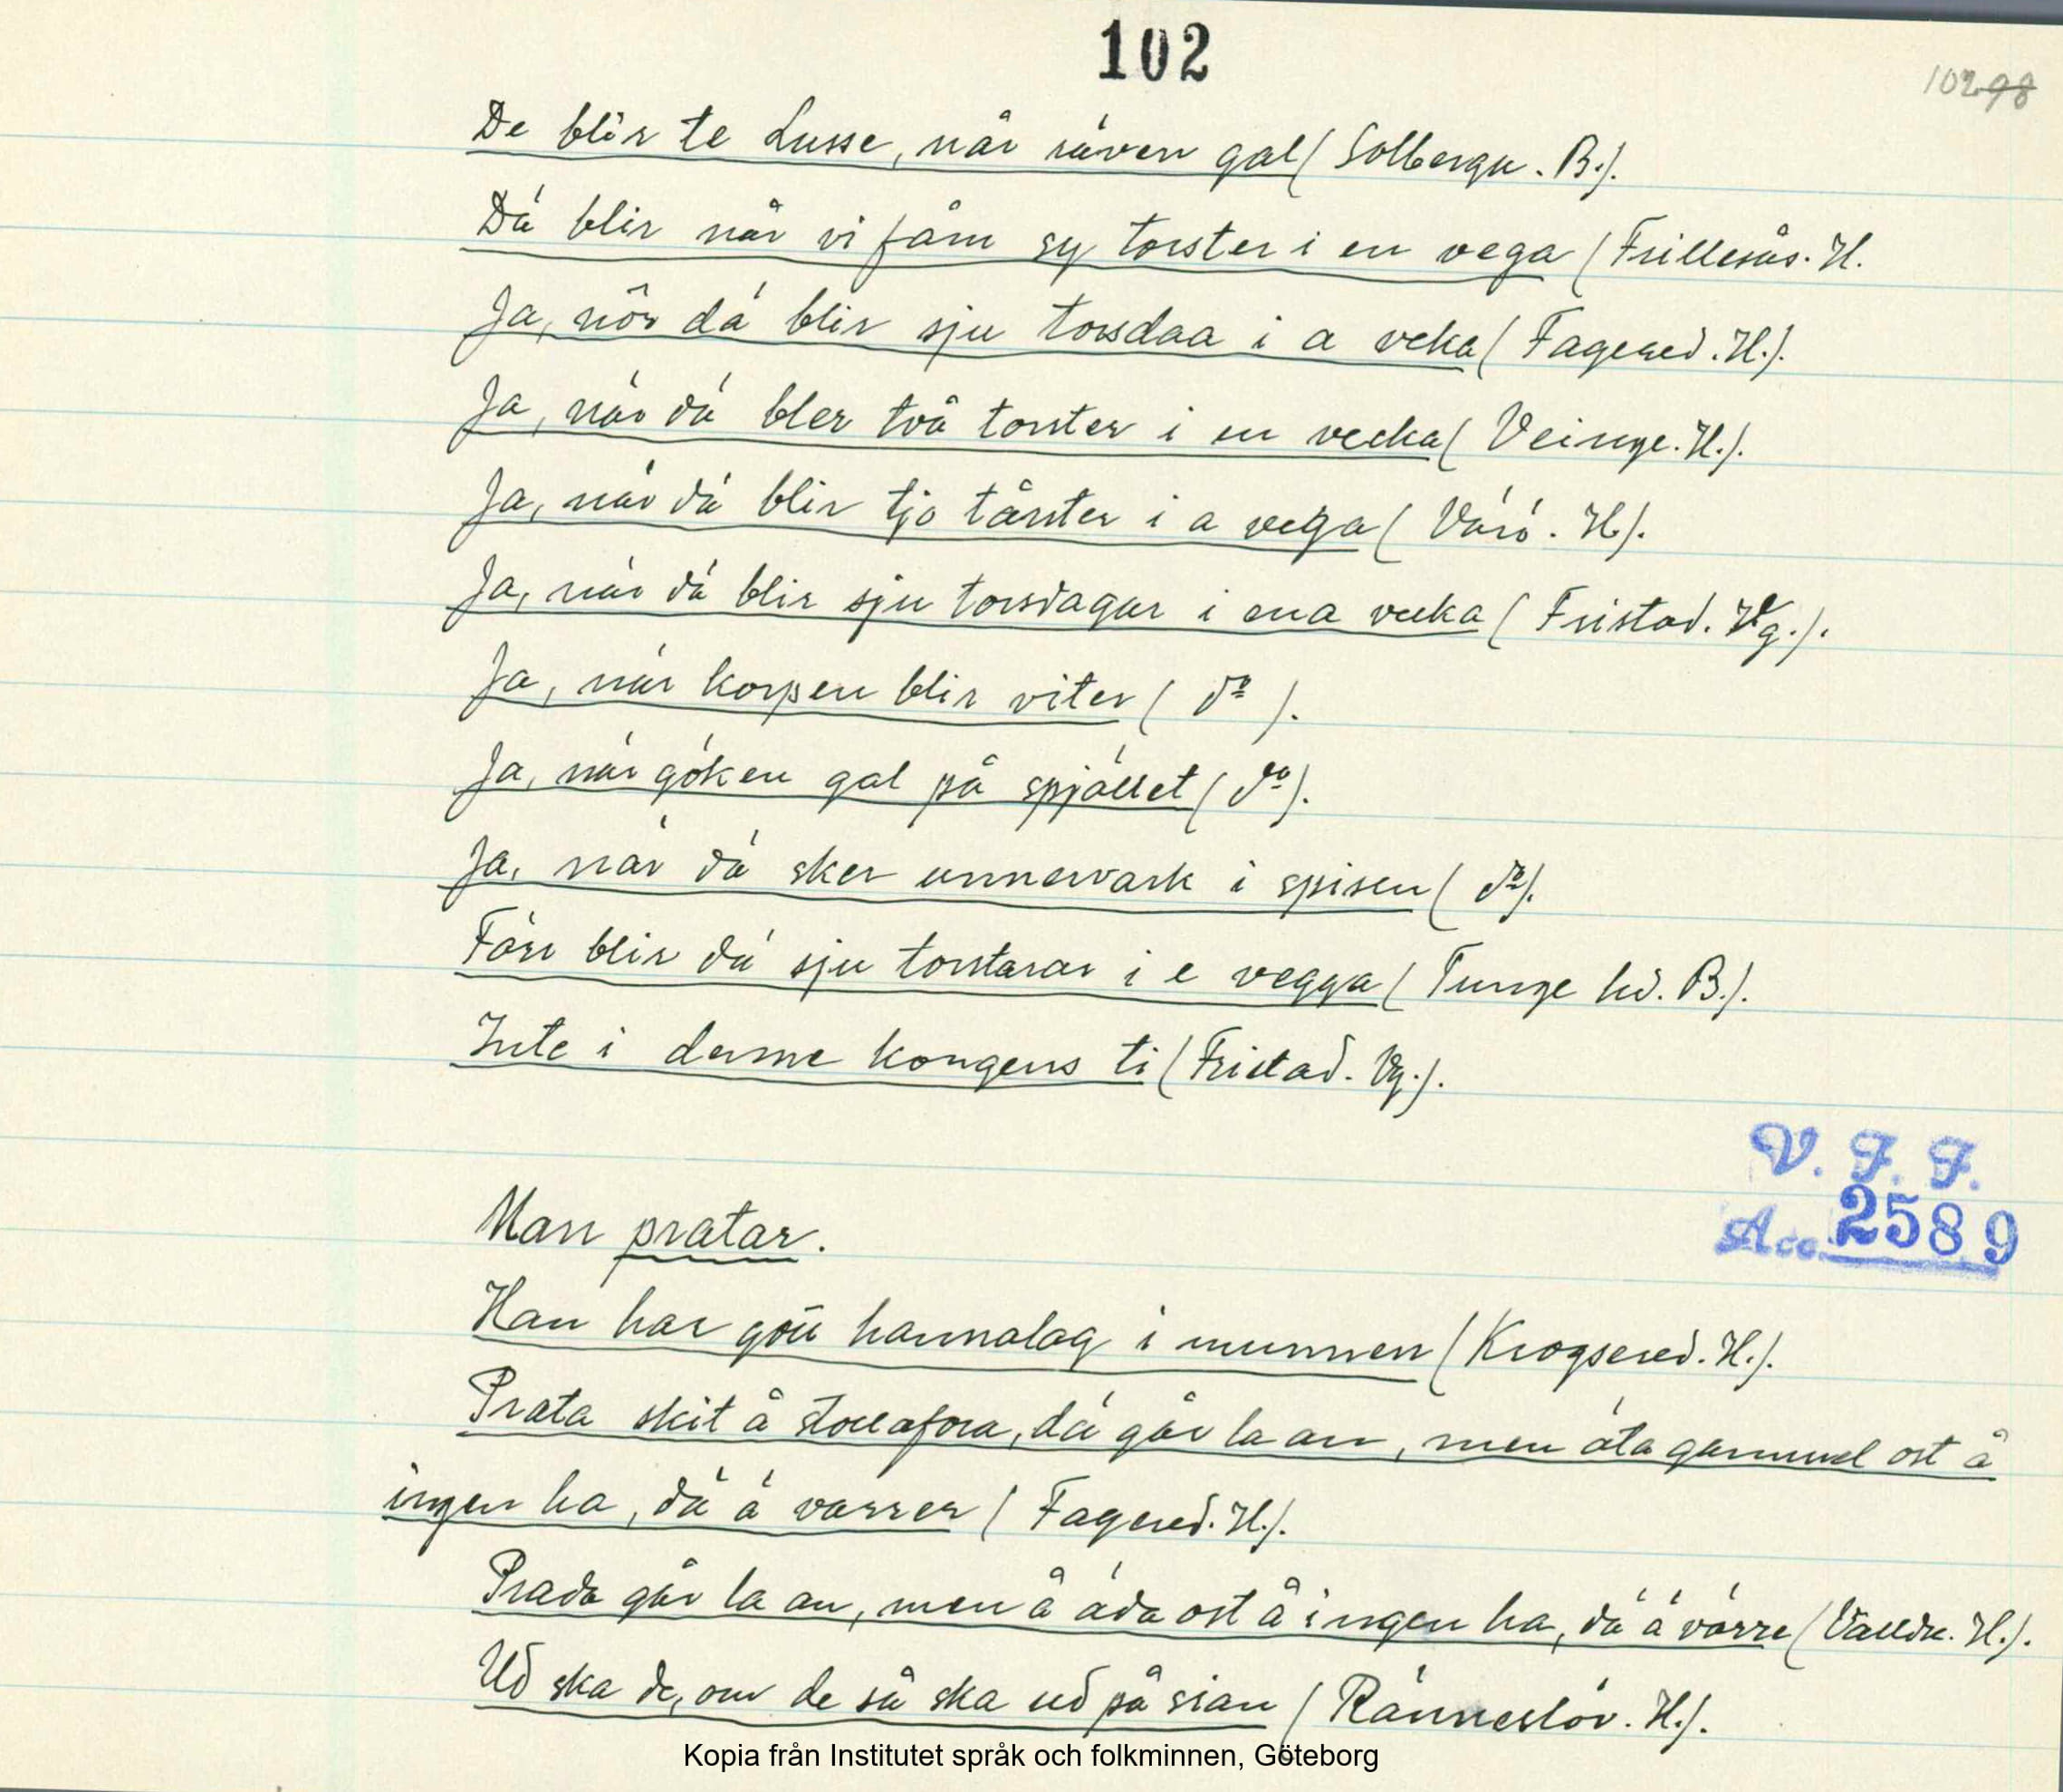 102
102 98
De blir te Lusse, når räven gal (Solberga. B.).
Dä blir når vi fåm sy torster i en vega (Frillesås. H.
Ja, nôr dä blir sju torsdaa i a veka (Fagered. H.).
Ja, når dä bler två torster i en vecka (Veinge. H.).
Ja, när dä blir tjo tårster i a vega (Värö. H.).
Ja, när dä blir sju torsdagar i ena vecka (Fristad. Vg.).
Ja, när korpen blir viter (do ).
Ja, när göken gal på spjället (do).
Ja, när dä sker unnervark i spisen (do).
Förr blir dä sju torstarar i e vegga (Tunge hd. B.).
Inte i denne kongens ti (Fristad. Vg.).
V. F. F.
Acc. 2589
Man pratar.
Han har goü hannalag i munnen (Krogsered. H.).
Prata skit å, dä går la an, men äta gammel ost å
ingen ha, dä ä varrer (Fagered. H.).
Prada går la an, men å äda ost å ingen ha, dä ä värre (Vallda. H.).
Ud ska de, om de så ska ud på sian (Ränneslöv. H.).
Kopia från Institutet språk och folkminnen, Göteborg